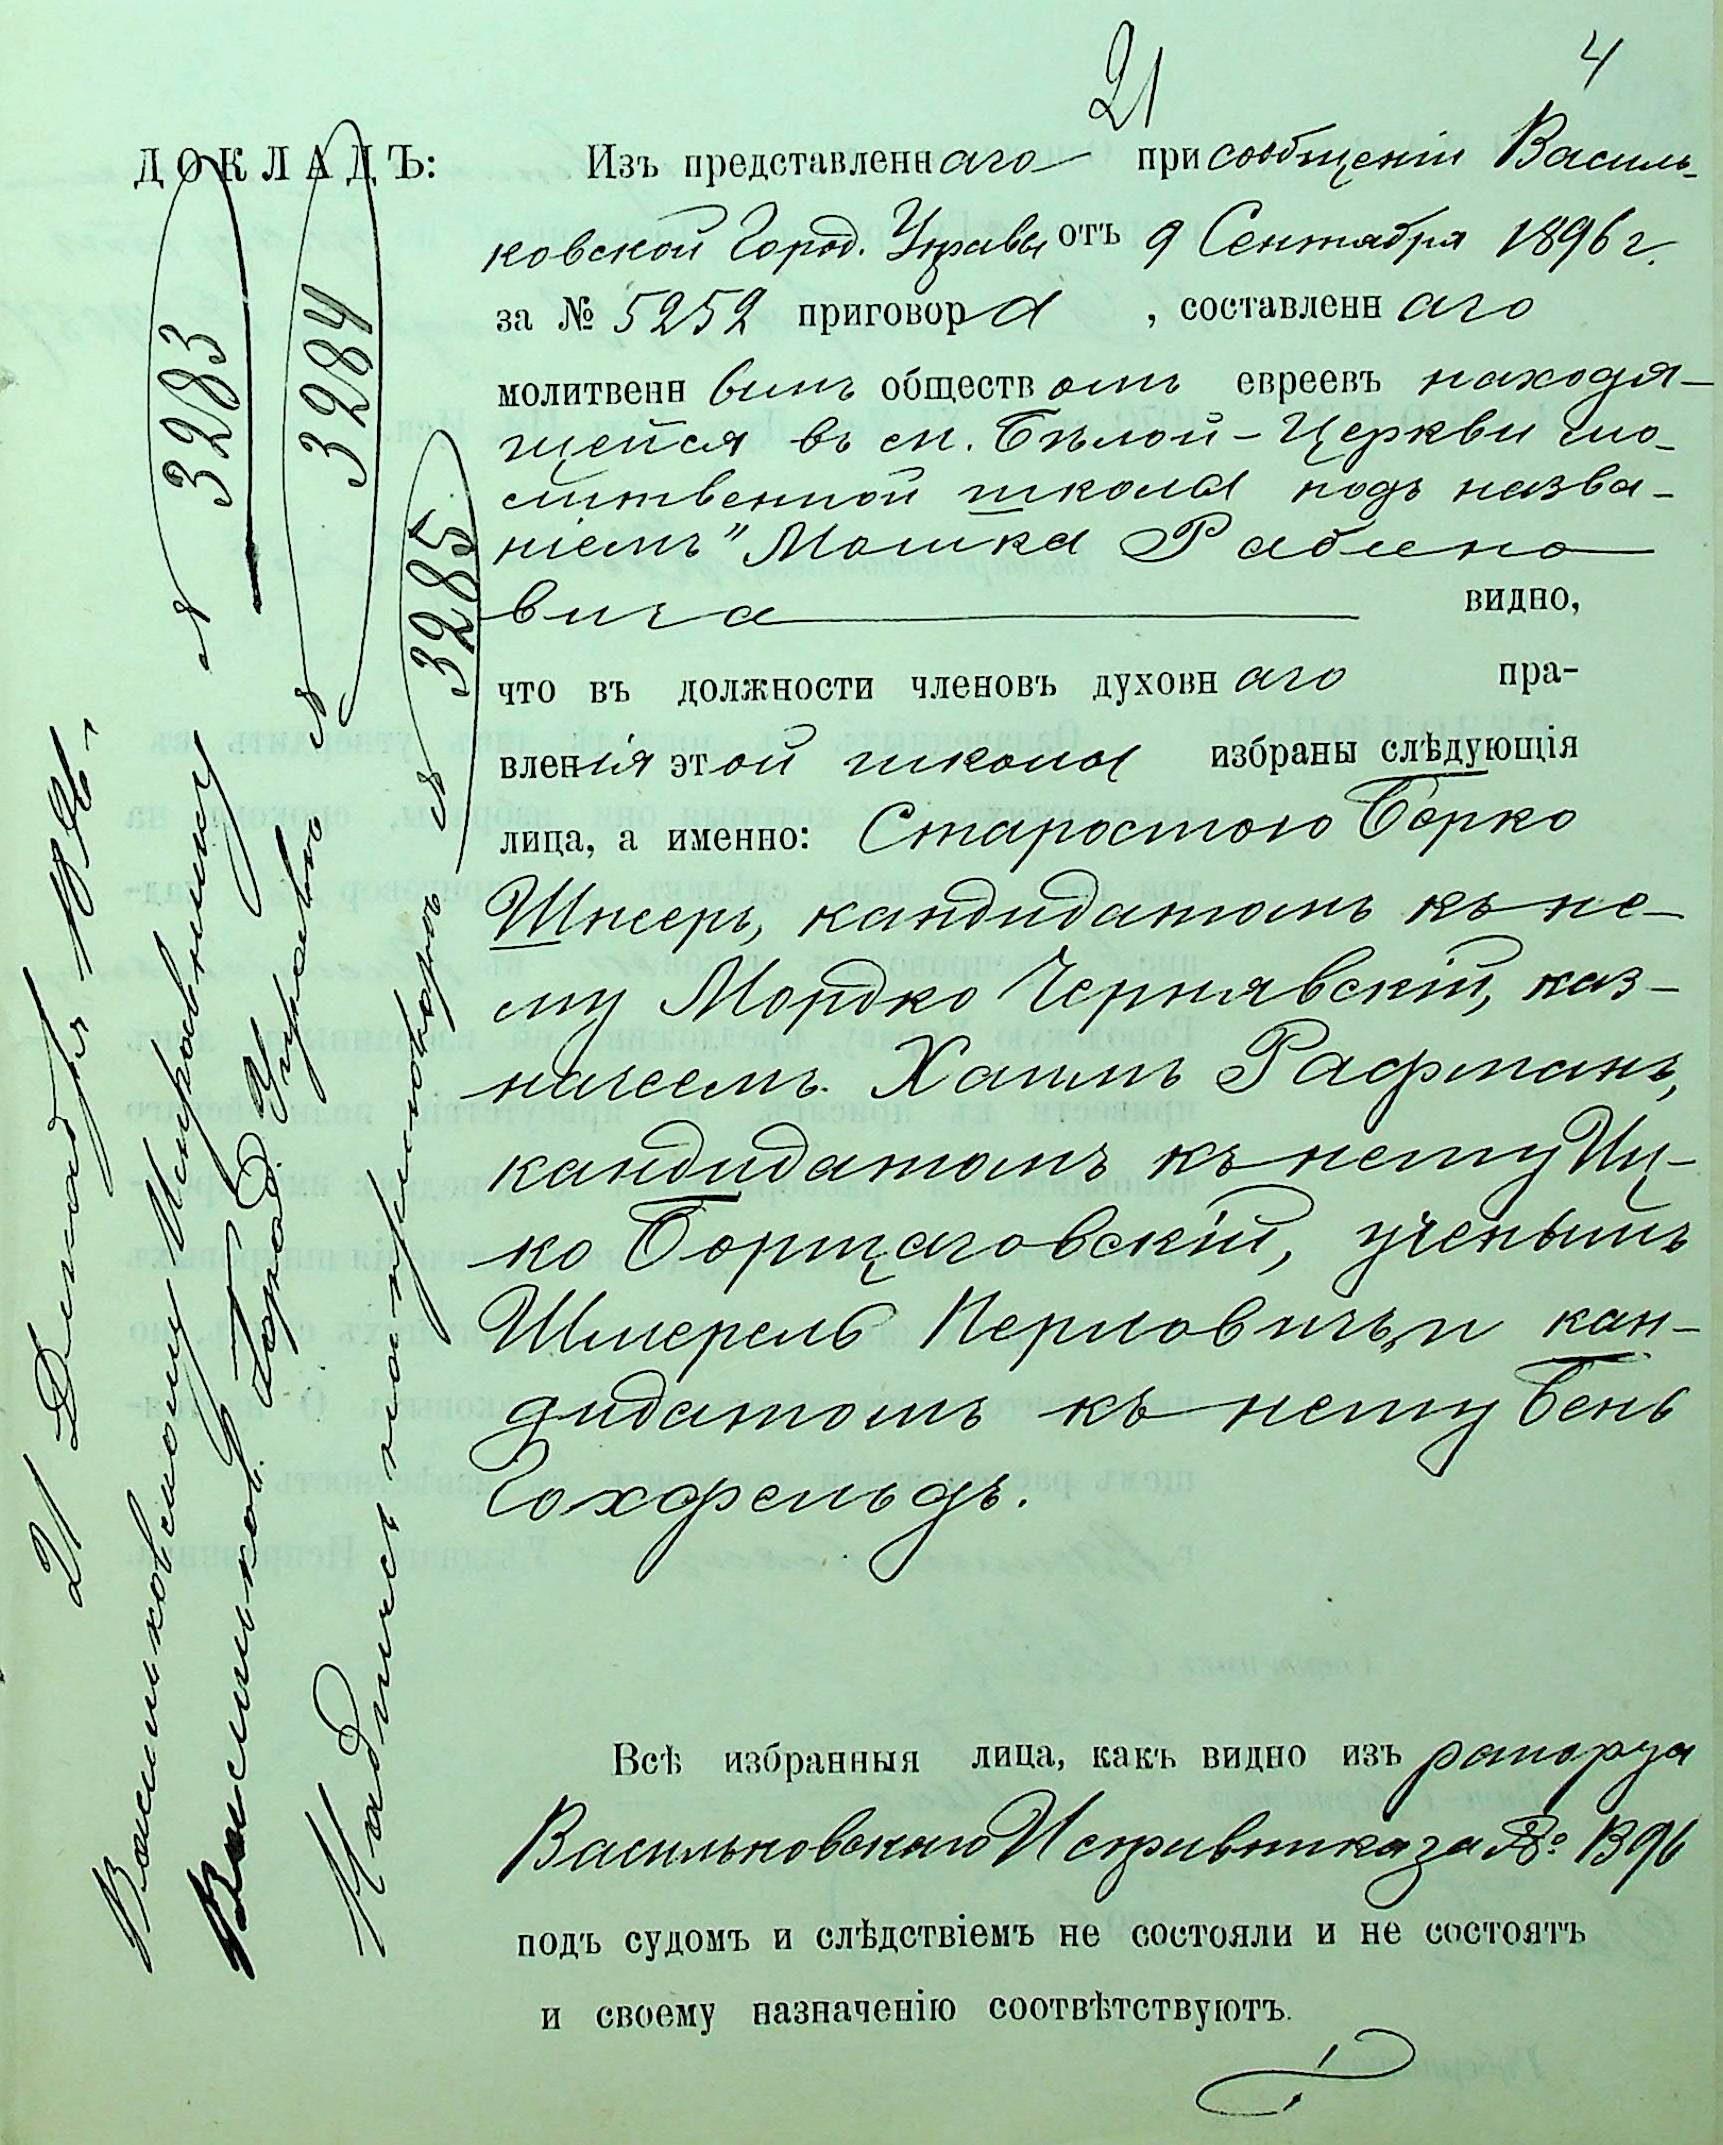 21
4
ДОКЛАДЪ:
Изъ представленнаго при сообщеніи Василь-
ковской Город. Управы отъ 9 Сентября 1896 г.
за № 5252 приговора, составленнаго
молитвеннымъ обществомъ евреевъ находя-
щейся въ м. Бѣлой-Церкви мо-
литвенной школы подъ назва-
ніемъ "Мошка Рабино
вича видно,
что въ должности членовъ духовнаго пра-
вленія этой школы избраны слѣдующія
лица, а именно: Старостою Берко
Шнееръ, кандидатомъ къ не-
му Мордко Чернявскій, каз-
начеемъ Хаимъ Рафманъ,
кандидатомъ къ нему Иц-
ко Борщаговскій, ученымъ
Шмерель Перловичъ и кан-
дидатомъ къ нему Бень
Гохфельдъ.
Всѣ избранныя лица, какъ видно изъ рапорта
Васильковскаго Исправника за № 1396
подъ судомъ и слѣдствіемъ не состояли и не состоятъ
и своему назначенію соотвѣтствуютъ.
21 Декабря 1896
Васильковскому Исправнику № 3283
Васильков. Город. Управѣ № 3284
Надпись на приговорѣ № 3285